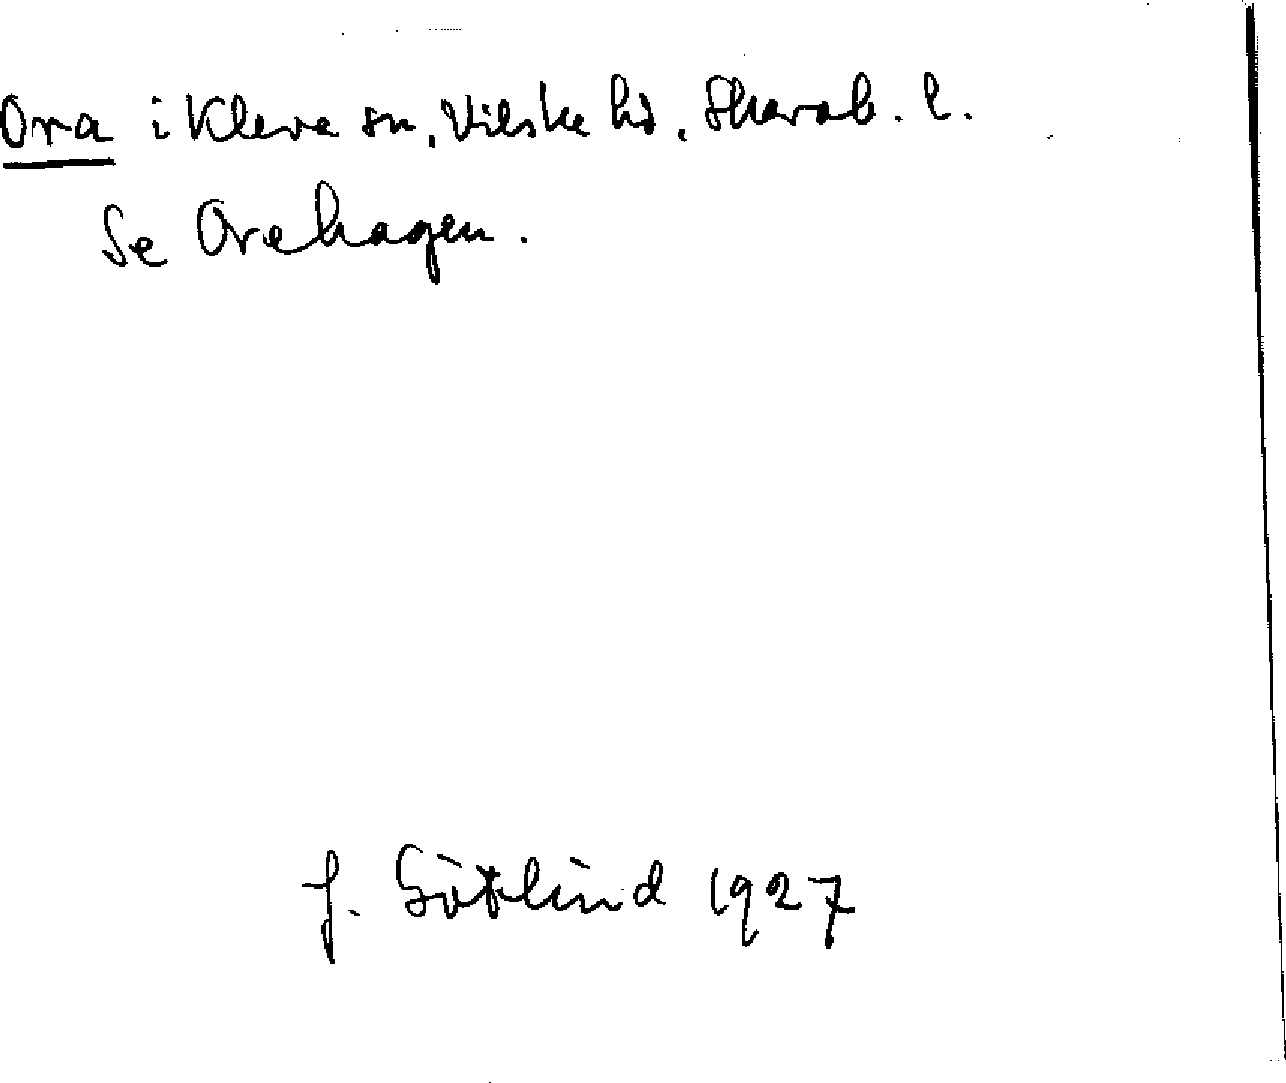 Ora i Kleva sn, Vilske hd, Skarab. l.
Se Orehagen.
J. Götlind 1927